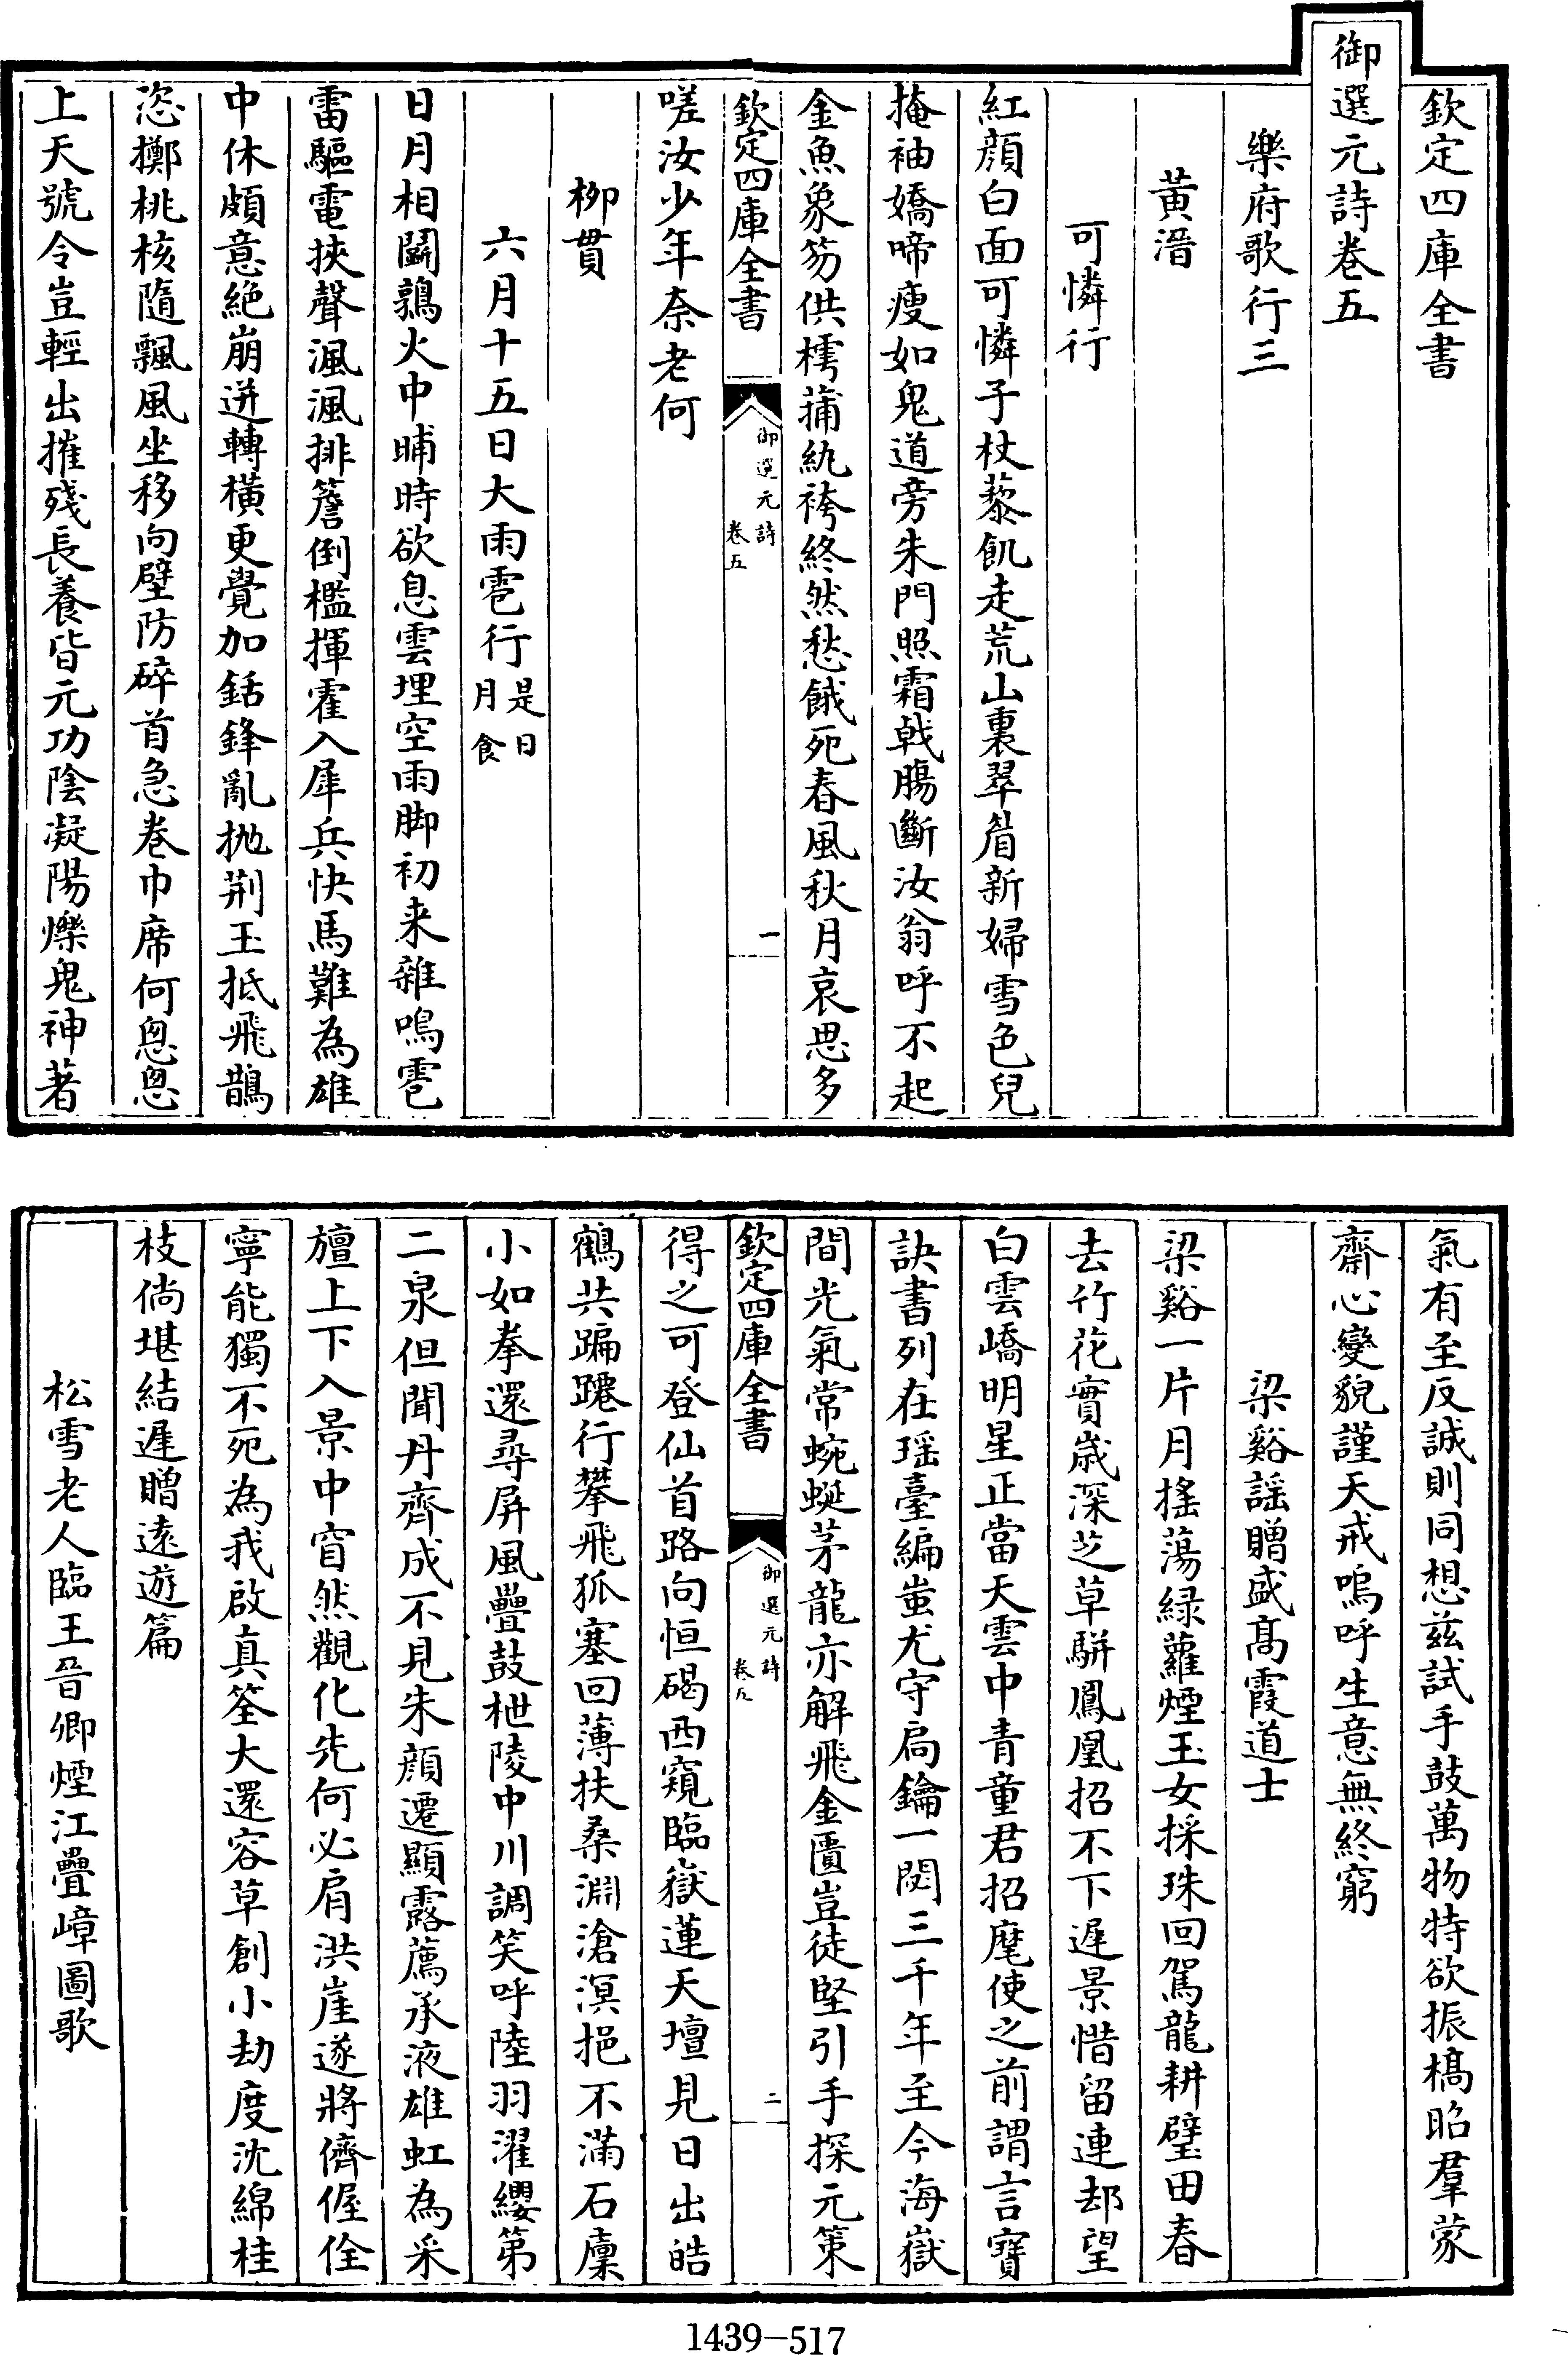 欽定四庫全書
御選元詩卷五
樂府歌行三
黃溍
可憐行
紅顔白面可憐子杖藜飢走荒山裏翠眉新婦雪色兒
掩袖嬌啼瘦如鬼道旁朱門照霜戟腸斷汝翁呼不起
金魚象笏供樗蒲紈袴終然愁餓死春風秋月哀思多
欽定四庫全書
御選元詩
卷五
一
嗟汝少年奈老何
柳貫
六月十五日大雨雹行是日月食
日月相鬭鶉火中晡時欲息雲埋空雨脚初来雜鳴雹
雷驅電挾聲渢渢排簷倒檻揮霍入犀兵快馬難為雄
中休頗意絶崩迸轉橫更覺加銛鋒亂抛荆玉抵飛鵲
恣擲桃核隨飄風坐移向壁防碎首急卷巾席何恖恖
上天號令豈輕出摧殘長養皆元功陰凝陽爍鬼神著
氣有至反誠則同想兹試手鼓萬物特欲振槁昭羣蒙
齋心變貌謹天戒嗚呼生意無終窮
梁谿謡贈盛髙霞道士
梁谿一片月搖蕩緑蘿煙玉女採珠回駕龍耕璧田春
去竹花實歳深芝草駢鳳凰招不下遲景惜留連却望
白雲嶠明星正當天雲中青童君招麾使之前謂言寶
訣書列在瑶臺編蚩尤守扃鑰一閟三千年至今海嶽
間光氣常蜿蜒茅龍亦解飛金匱豈徒堅引手探元策
欽定四庫全書
御選元詩
卷五
二
得之可登仙首路向恒碣西窺臨嶽蓮天壇見日出皓
鶴共蹁躚行攀飛狐塞回薄扶桑淵滄溟挹不滿石廩
小如拳還尋屏風疊鼓枻陵中川調笑呼陸羽濯纓第
二泉但聞丹齊成不見朱顔遷顯露薦承液雄虹為采
旜上下入景中窅然觀化先何必肩洪崖遂將儕偓佺
寧能獨不死為我啟真筌大還容草創小劫度沈綿桂
枝倘堪結遲贈逺遊篇
松雪老人臨王晉卿煙江疊嶂圖歌
1439-517